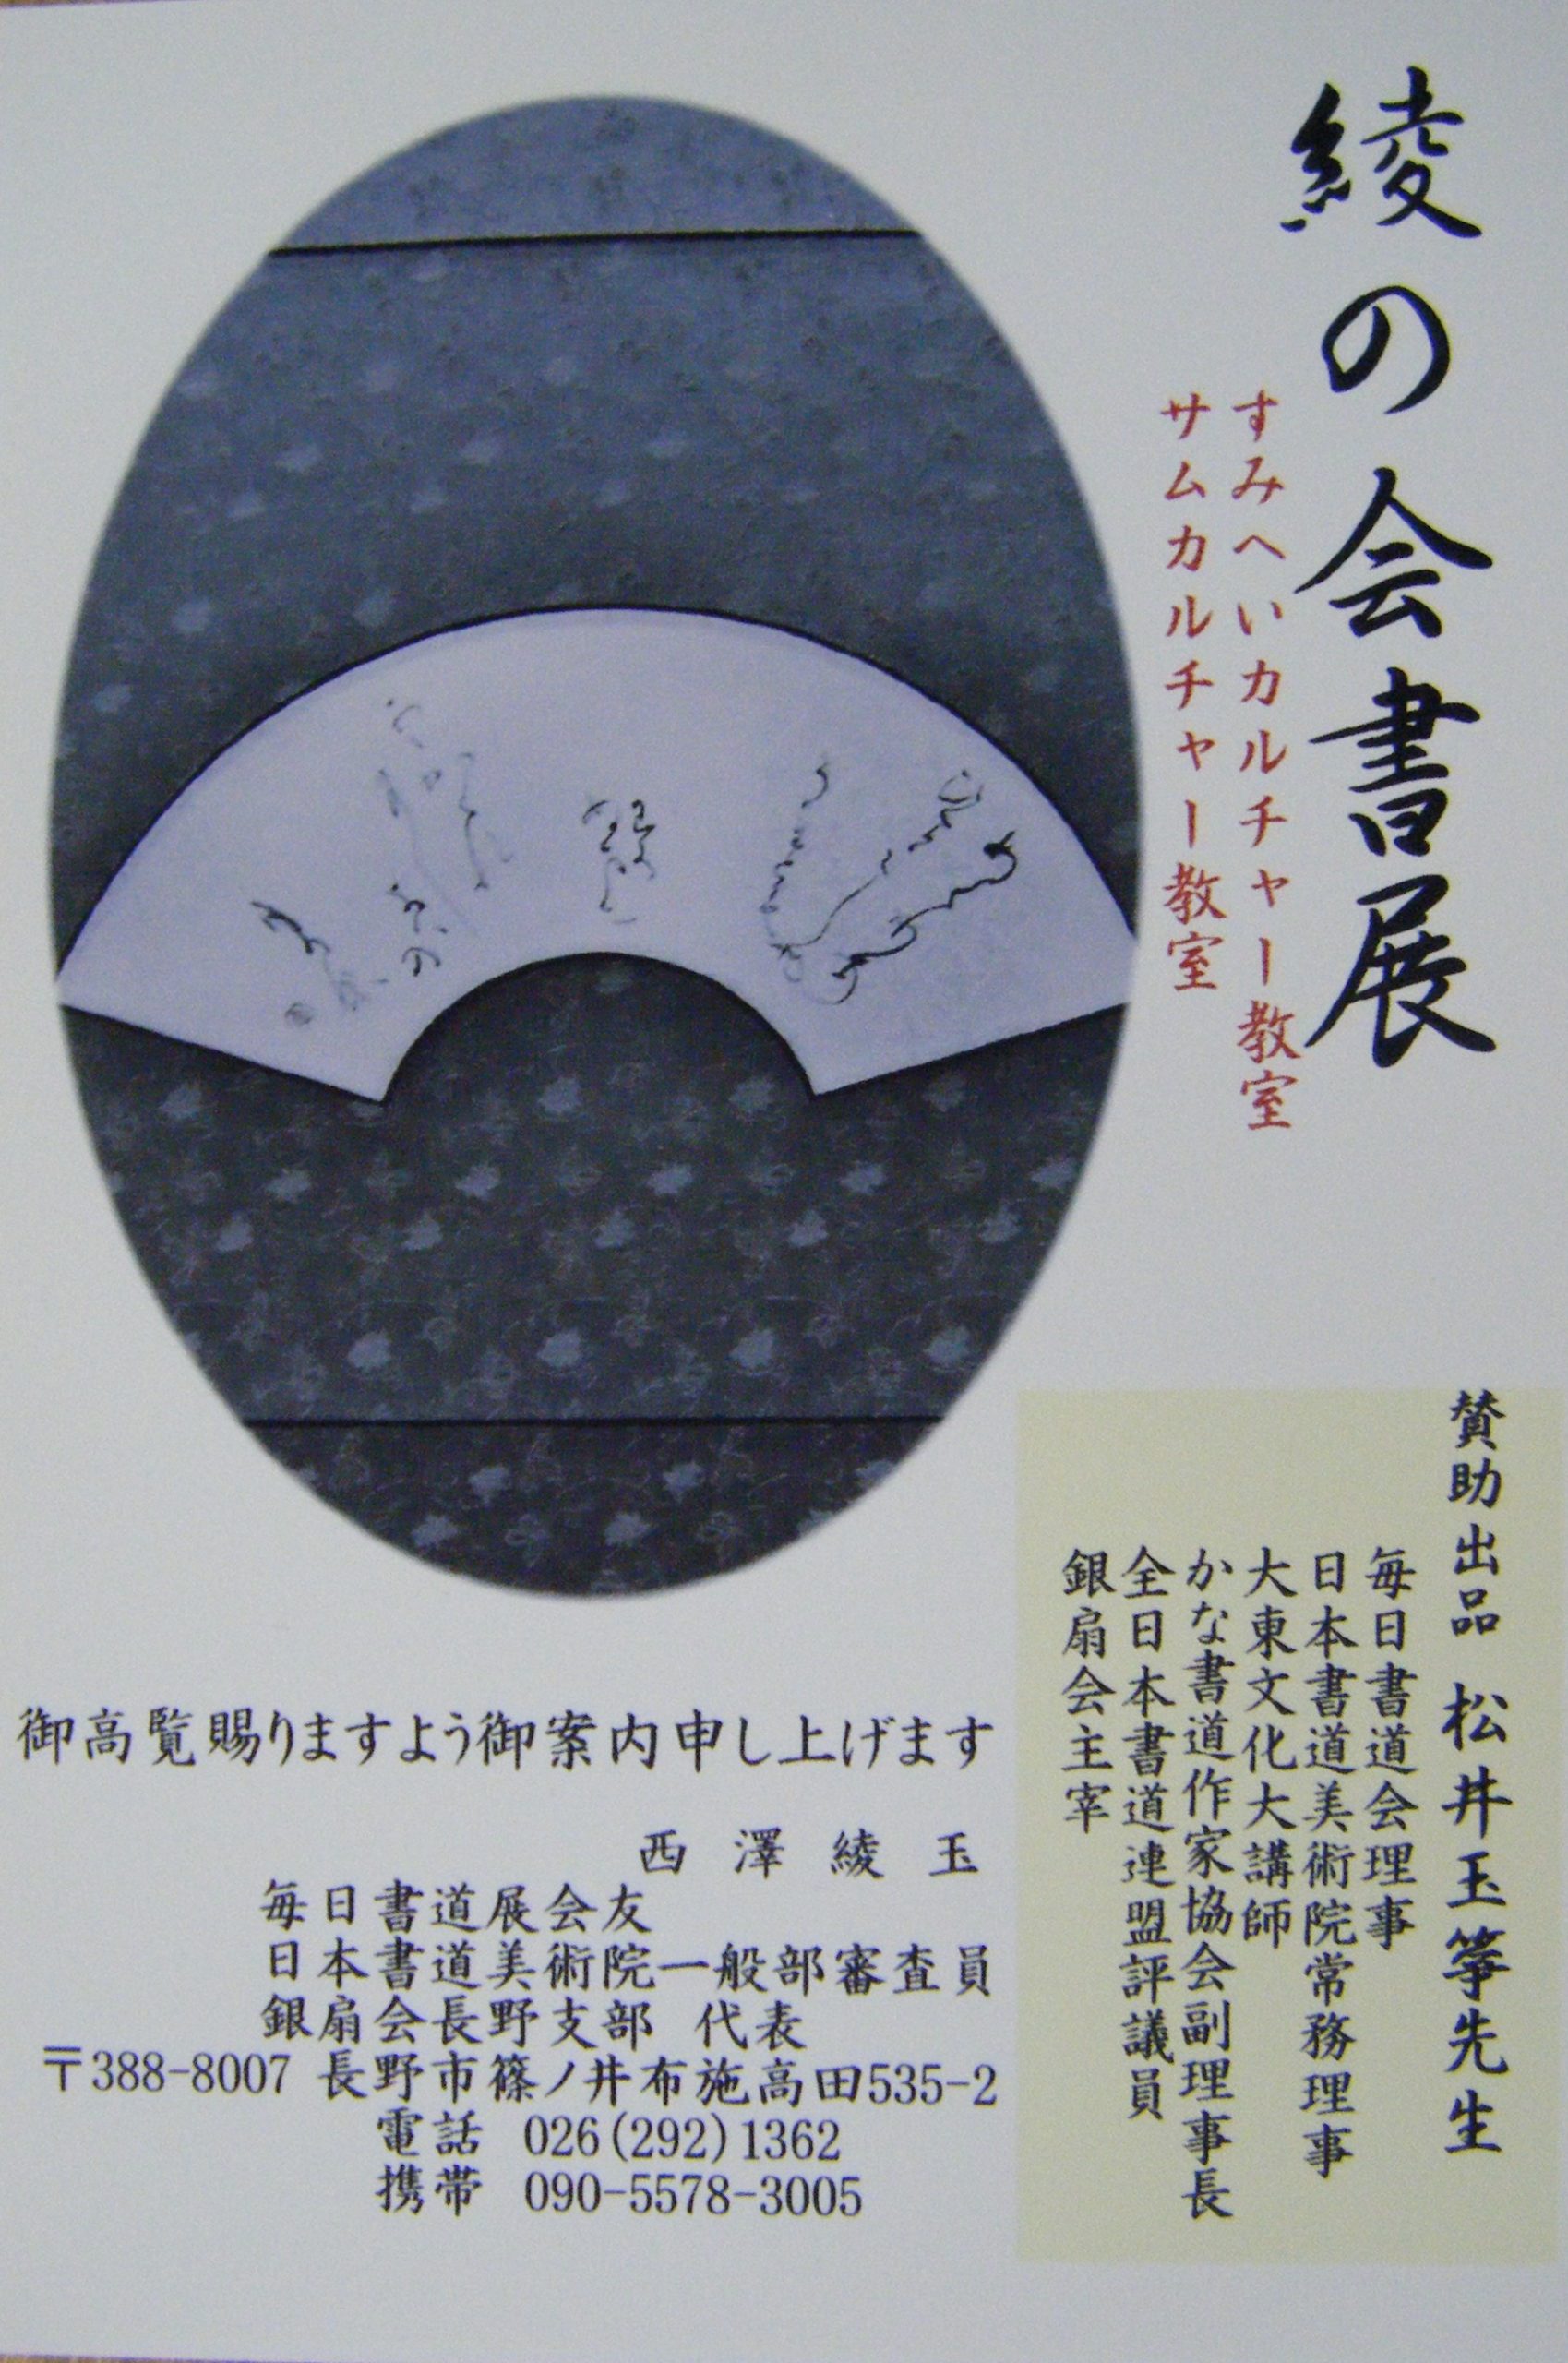 綾の会書展
すみへいカルチャー教室
サムカルチャー教室
賛助出品 松井玉箏先生
毎日書道会理事
日本書道美術院常務理事
大東文化大講師
かな書道作家協会副理事長
全日本書道連盟評議員
銀扇会主宰
御高覧賜りますよう御案内申し上げます
西澤綾玉
毎日書道展会友
日本書道美術院一般部審査員
銀扇会長野支部 代表
〒388-8007 長野市篠ノ井布施高田535-2
電話 026(292)1362
携帯 090-5578-3005